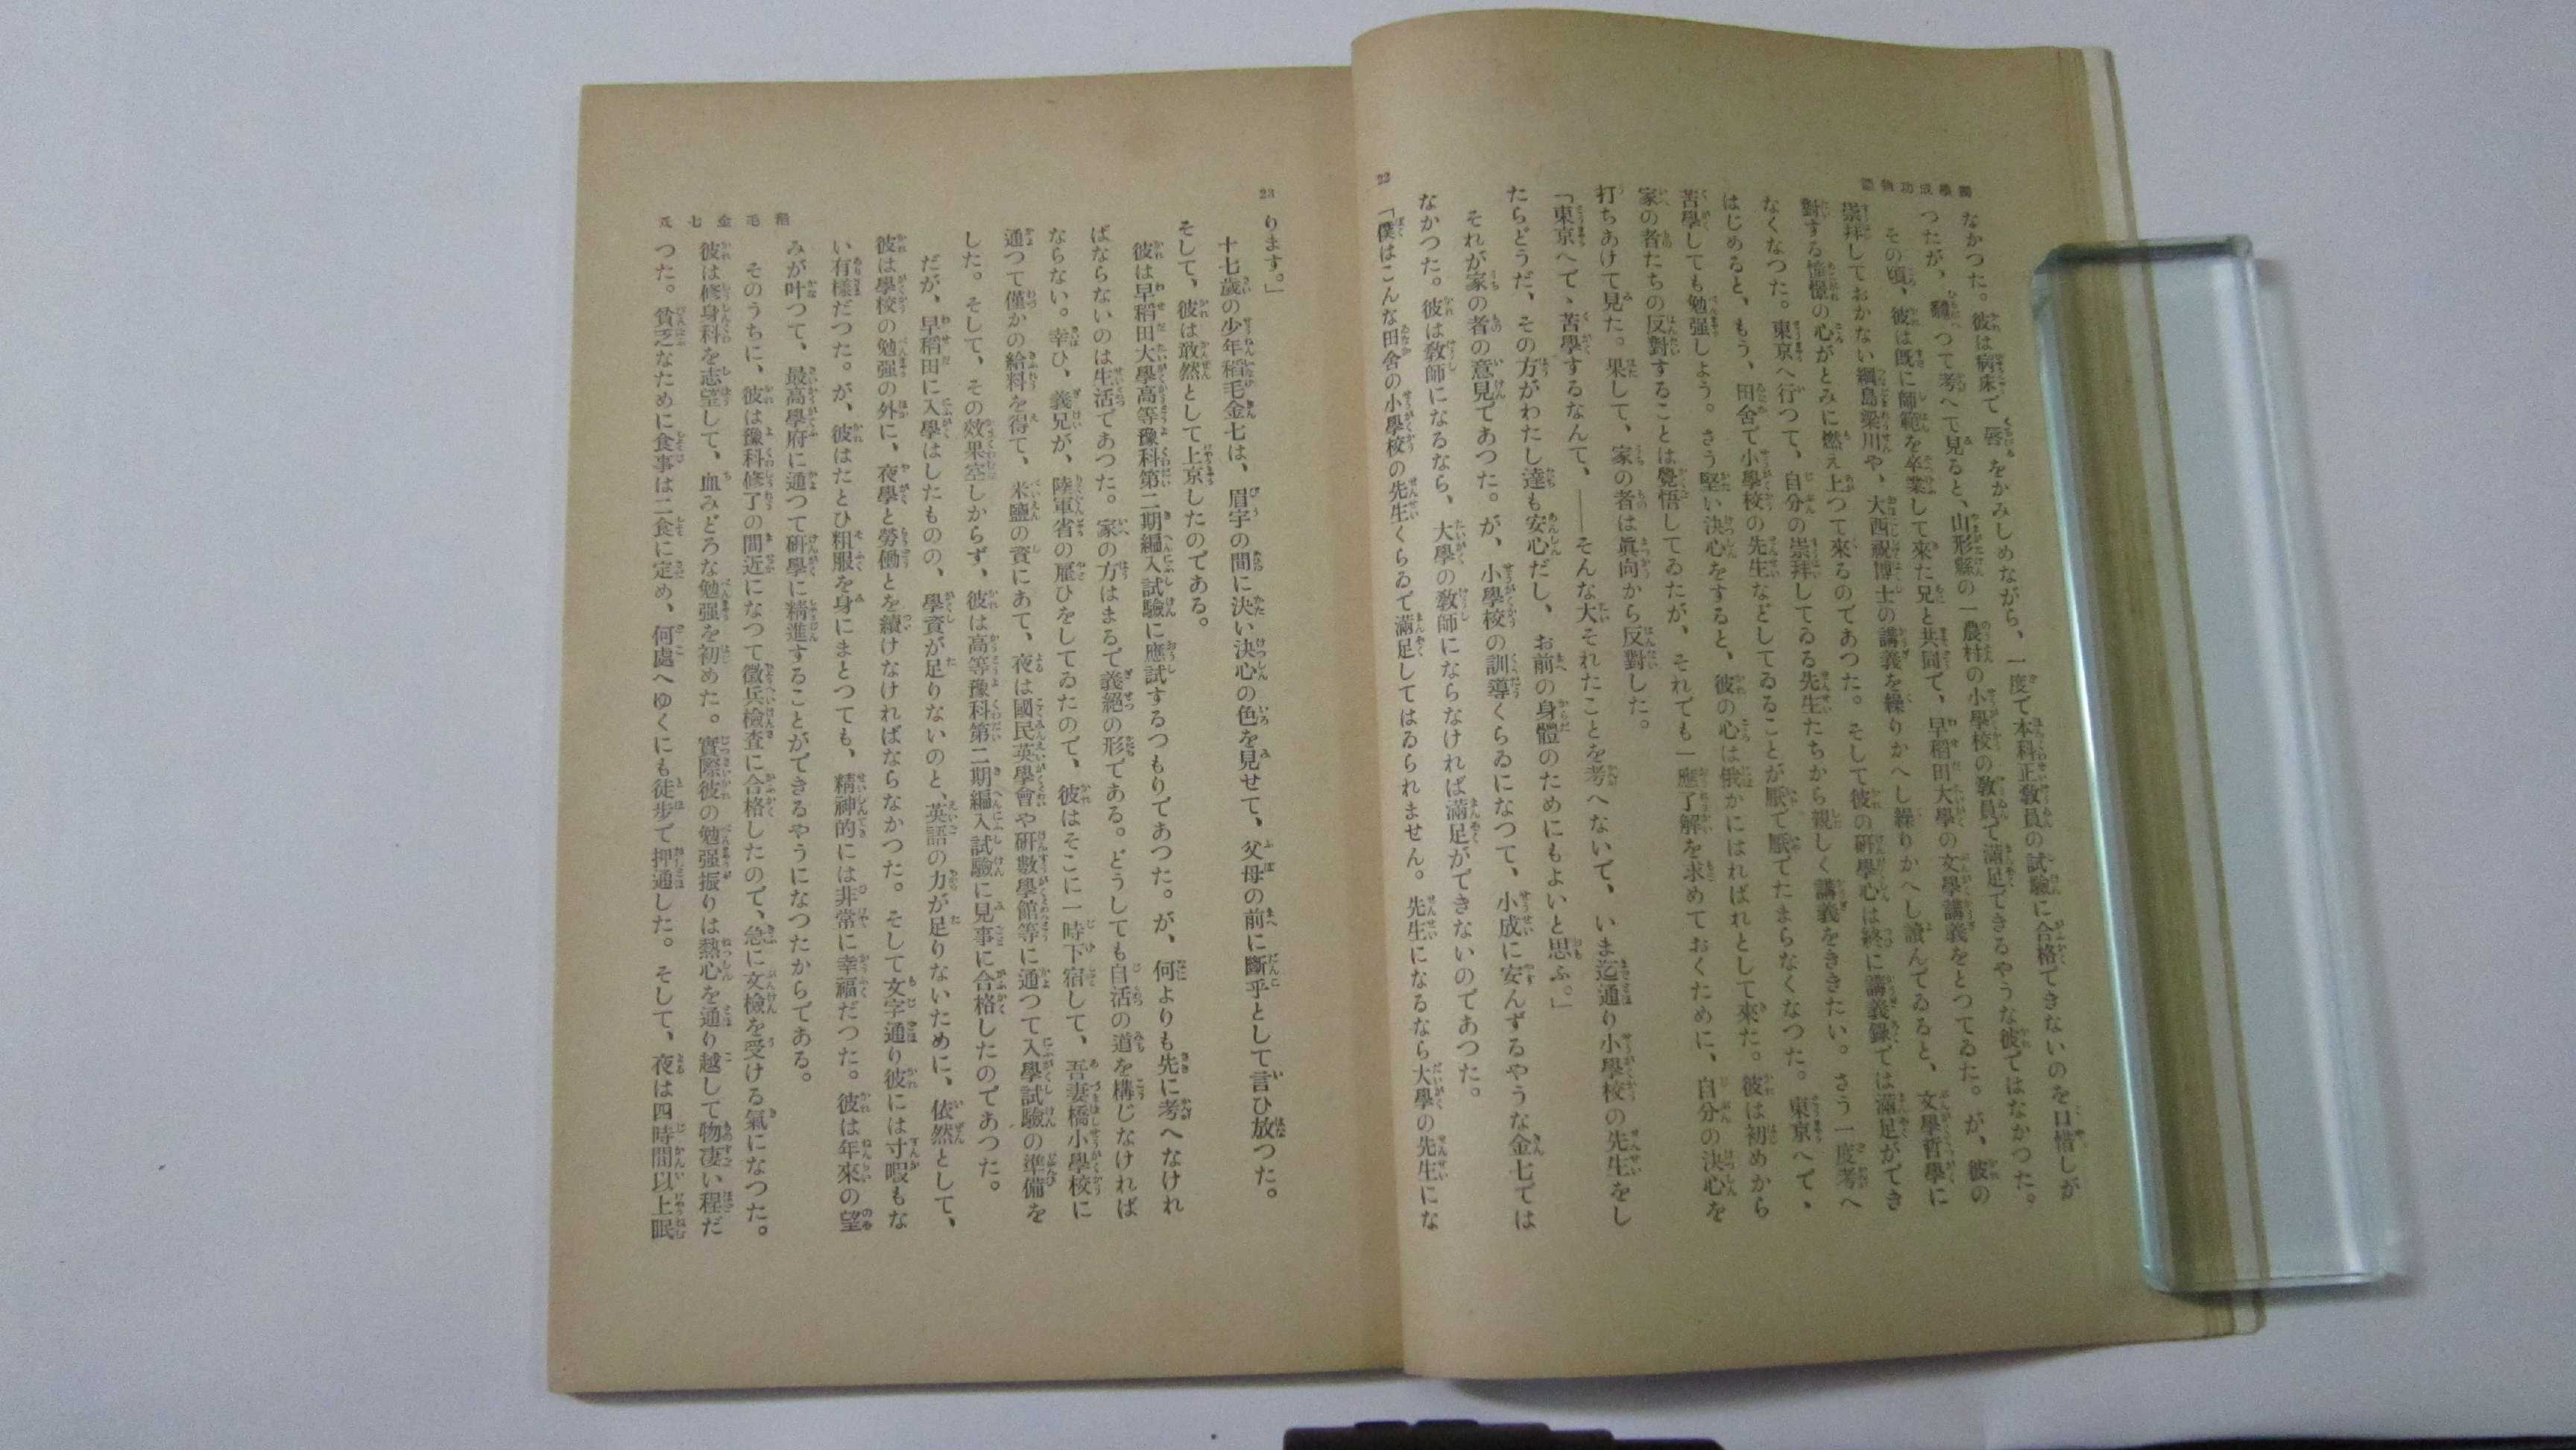 獨學成功物語
なかつた。彼は病床で唇をかみしめながら、一度で本科正敎員の試驗に合格できないのを口惜しが
つたが、飜つて考へて見ると、山形縣の一農村の小學校の敎員で滿足できるやうな彼ではなかつた。
その頃、彼は既に師範を卒業して來た兄と共同で、早稻田大學の文學講義をとつてゐた。が、彼の
崇拜しておかない綱島梁川や、大西祝博士の講義を繰りかへし繰りかへし讀んでゐると、文學哲學に
對する憧憬の心がとみに燃え上つて來るのであつた。そして彼の硏學心は終に講義錄では滿足ができ
なくなつた。東京へ行つて、自分の崇拜してゐる先生たちから親しく講義をききたい。さう一度考へ
はじめると、もう、田舍で小學校の先生などしてゐることが厭で厭でたまらなくなつた。東京へで、
苦學しても勉强しよう。さう堅い決心をすると、彼の心は俄かにはればれとして來た。彼は初めから
家の者たちの反對することは覺悟してゐたが、それでも一應了解を求めておくために、自分の決心を
打ちあけて見た。果して、家の者は眞向から反對した。
「東京へで、苦學するなんて、――そんな大それたことを考へないで、いま迄通り小學校の先生をし
たらどうだ、その方がわたし達も安心だし、お前の身體のためにもよいと思ふ。」
それが家の者の意見であつた。が、小學校の訓導くらゐになつて、小成に安んずるやうな金七では
なかつた。彼は敎師になるなら、大學の敎師にならなければ滿足ができないのであつた。
「僕はこんな田舍の小學校の先生くらゐで滿足してはゐられません。先生になるなら大學の先生にな
22
23
ります。」
十七歲の少年稻毛金七は、眉宇の間に決い決心の色を見せて、父母の前に斷乎として言ひ放つた。
そして、彼は敢然として上京したのである。
彼は早稻田大學高等豫科第二期編入試驗に應試するつもりであつた。が、何よりも先に考へなけれ
ばならないのは生活であつた。家の方はまるで義絕の形である。どうしても自活の道を構じなければ
ならない。幸ひ、義兄が、陸軍省の雇ひをしてゐたので、彼はそこに一時下宿して、吾妻橋小學校に
通つて僅かの給料を得て、米鹽の資にあて、夜は國民英學會や硏數學館等に通つて入學試驗の準備を
した。そして、その效果空しからず、彼は高等豫科第二期編入試驗に見事に合格したのであつた。
だが、早稻田に入學はしたものの、學資が足りないのと、英語の力が足りないために、依然として、
彼は學校の勉强の外に、夜學と勞働とを續けなければならなかつた。そして文字通り彼には寸暇もな
い有樣だつた。が、彼はたとひ粗服を身にまとつても、精神的には非常に幸福だつた。彼は年來の望
みが叶つて、最高學府に通つて硏學に精進することができるやうになつたからである。
そのうちに、彼は豫科修了の間近になつて徵兵檢査に合格したので、急に文檢を受ける氣になつた。
彼は修身科を志望して、血みどろな勉强を初めた。實際彼の勉强振りは熱心を通り越して物凄い程だ
つた。貧乏なために食事は二食に定め、何處へゆくにも徒步で押通した。そして、夜は四時間以上眠
稻毛金七氏